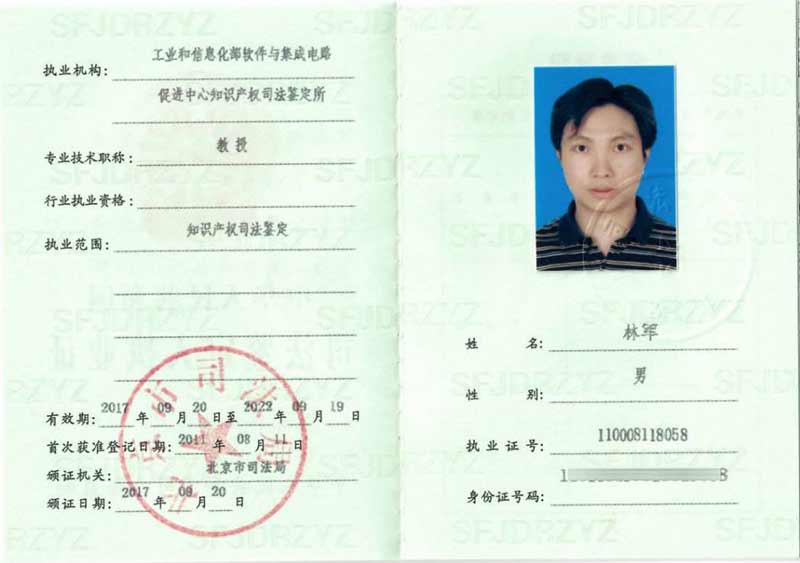 执业机构：工业和信息化部软件与集成电路
促进中心知识产权司法鉴定所
专业技术职称：教授
行业执业资格：
执业范围：知识产权司法鉴定
有效期：2017年09月20日至2022年09月19日
首次获准登记日期：2011年08月11日
颁证机关：北京市司法局
颁证日期：2017年09月20日
北京市司法局
姓名：林军
性别：男
执业证号：110008118058
身份证号码：
SFJDRZYZ